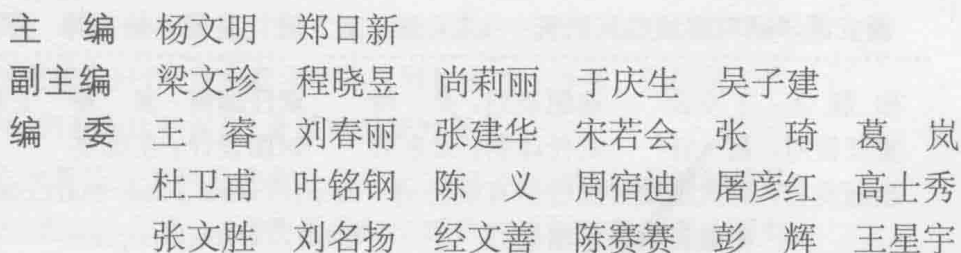 主　编　杨文明　郑日新
副主编　梁文珍　程晓昱　尚莉丽　于庆生　吴子建
编　委　王　睿　刘春丽　张建华　宋若会　张　琦　葛　岚
杜卫甫　叶铭钢　陈　义　周宿迪　屠彦红　高士秀
张文胜　刘名扬　经文善　陈赛赛　彭　辉　王星宇